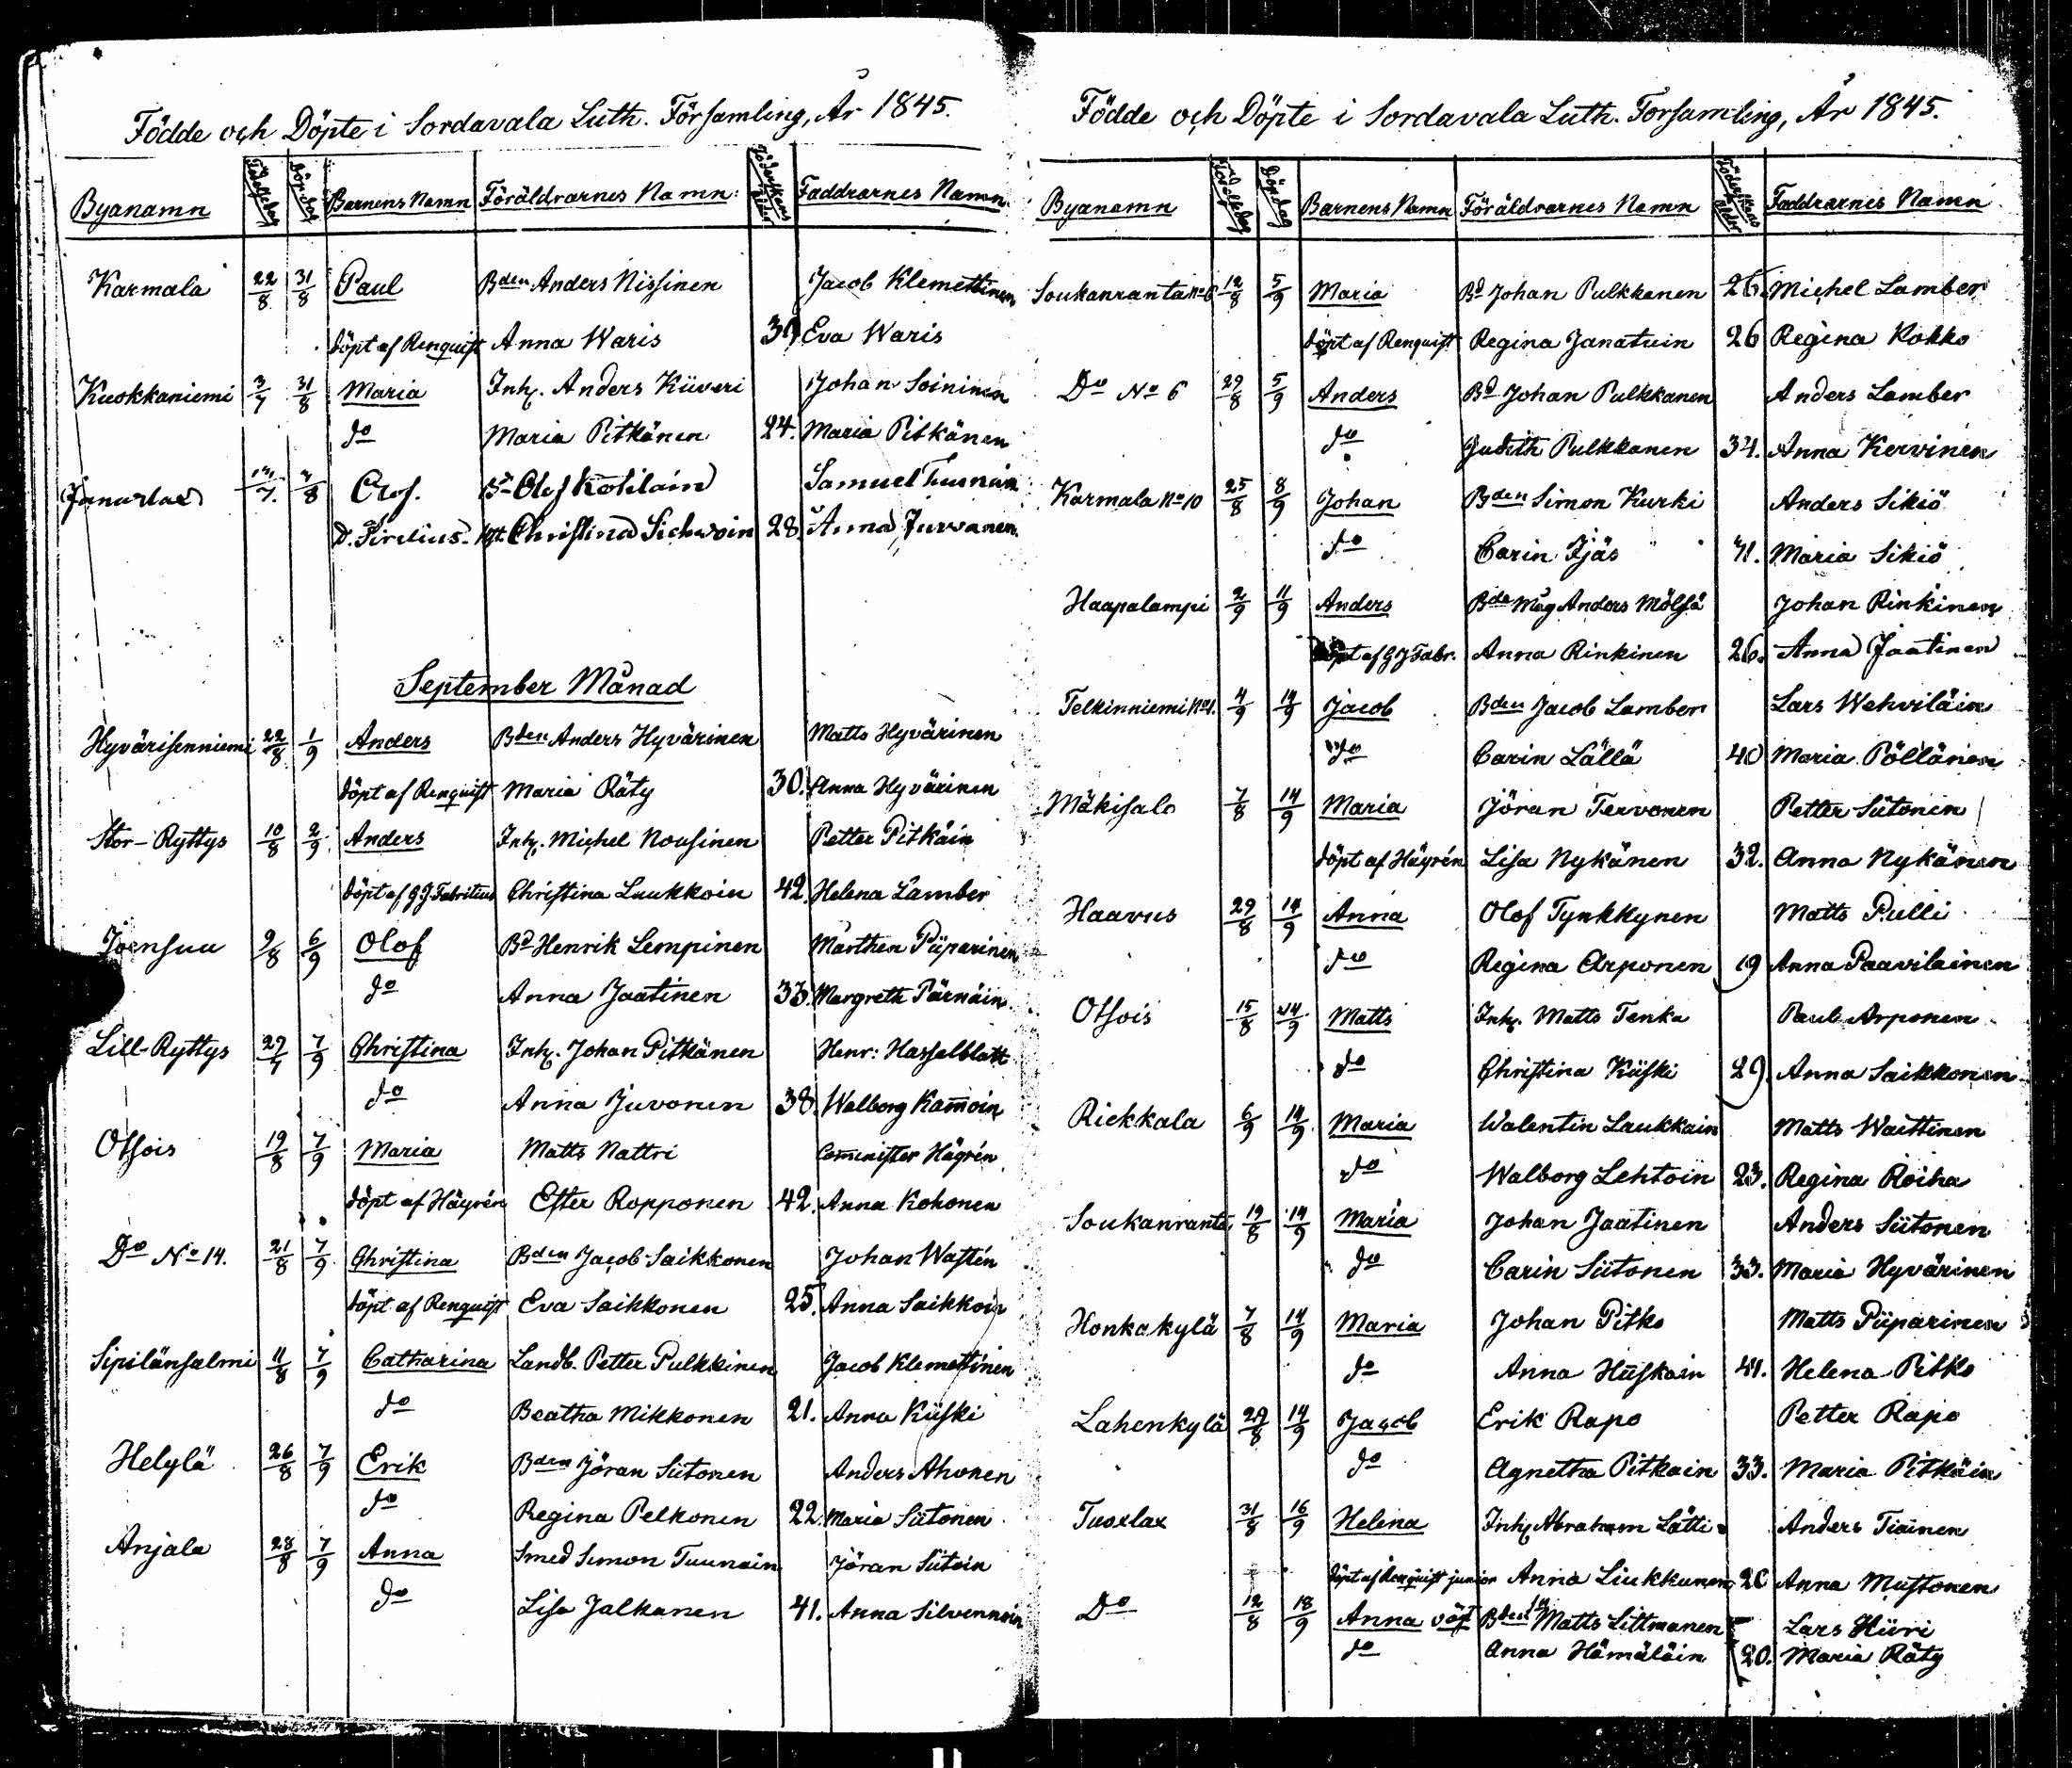 Födde och Döpte i Sordavala Luth. Församling, År 1845.
Byanamn Födelsedag Döpdag Barnens Namn Föräldrarnes Namn: Föderskans ålder Faddrarnes Namn
Karmala 22/8 31/8 Paul Bden Anders Nissinen Jacob Klemettinen
döpt af Renquist Anna Waris Eva Waris
Kuokkaniemi 3/7 31/8 Maria Inh. Anders Kiiveri Johan Soininen
do Maria Pitkänen 24. Maria Pitkänen
/8 Olof. Olof Kotilain Samuel
D. Sirelius. Christina 28. Anna Jurvanen
September Månad
Hyvärisenniemi 22/8 1/9 Anders Bden Anders Hyvärinen Matts Hyvärinen
döpt af Renquist Maria Räty 30. Anna Hyvärinen
Stor-Ryttys 10/8 2/9 Anders Inh. Michel Nousinen Petter Pitkäin
döpt af G J Fabritius Christina Luukkoin 42. Helena Lamber
Joensuu 9/8 6/9 Olof Bd Henrik Lempinen Mårthen Piiparinen
do Anna Jaatinen 33. Margreth Pärnäin
Lill-Ryttys 7/9 Christina Inh. Johan Pitkänen Henr: Hasselblatt
do Anna Juvonen 38. Walborg Kam̄oin
Otsois 19/8 7/9 Maria Matts Nattri Com̄inister Häyrén
döpt af Häyrén Ester Ropponen 42. Anna Kohonen
Do No 14. 21/8 7/9 Christina Bden Jacob Saikkonen Johan Wastén
döpt af Renquist Eva Saikkonen 25. Anna Saikkoin
Sipilänsalmi 11/8 7/9 Catharina Landb. Petter Pulkkinen Jacob Klemettinen
do Beatha Mikkonen 21. Anna Kiiski
Helylä 26/8 7/9 Erik Bden Jöran Siitonen Anders Ahonen
do Regina Pelkonen 22. Maria Siitonen
Anjala 28/8 7/9 Anna Smed Simon Tuunain Jöran Siitoin
do Lisa Jalkanen 41. Anna Silvennoin
Födde och Döpte i Sordavala Luth. Forsamling, År 1845.
Byanamn Födelsedag Döpdag Barnens Namn Föräldrarnes Namn Föderskans ålder Faddrarnes Namn
Soukanranta No 6 12/8 5/9 Maria Bd Johan Pulkkanen 26. Michel Lamber
döpt af Renquist Regina Janatuin 26 Regina Kokko
Do No 6 29/8 5/9 Anders Bd Johan Pulkkanen Anders Lamber
do Judith Pulkkanen 34. Anna Kervinen
Karmala No 10 25/8 8/9 Johan Bden Simon Kurki Anders Sikiö
do Carin Ijäs 41. Maria Sikiö
Haapalampi 2/9 11/9 Anders Bde Måg Anders Mölsä Johan Rinkinen
döpt af G J Fabr. Anna Rinkinen 26. Anna Jaatinen
Telkinniemi No 1. 4/9 14/9 Jacob Bden Jacob Lamber Lars Wehviläin
do Carin Lällä 40 Maria Pöllänen
Mäkisalo 7/8 14/9 Maria Jöran Tervonen Petter Siitonen
döpt af Häyrén Lisa Nykänen 32. Anna Nykänen
Haavus 29/8 14/9 Anna Olof Tynkkynen Matts Pulli
do Regina Arponen 19 Anna Paavilainen
Otsois 15/8 14/9 Matts Inh. Matts Tenka Paul Arponen
do Christina Kiiski 29. Anna Saikkonen
Riekkala 6/9 14/9 Maria Walentin Laukkain Matts Waittinen
do Walborg Lehtoin 23. Regina Roiha
Soukanranta 19/8 14/9 Maria Johan Jaatinen Anders Siitonen
do Carin Siitonen 33. Maria Hyvärinen
Honkakylä 7/8 14/9 Maria Johan Pitko Matts Piiparinen
do Anna Hiiskain 41. Helena Pitko
Lahenkylä 29/8 14/9 Jacob Erik Rapo Petter Rapo
do Agnetha Pitkain 33. Maria Pitkäin
Tuoslax 31/8 16/9 Helena Inh. Abraham Lätti Anders Tiainen
döpt af Renquist junior Anna Liukkunen 20 Anna Mustonen
Do 12/8 18/9 Anna Bden Matts Littmanen Lars Hiiri
do Anna Hämäläin 20. Maria Räty